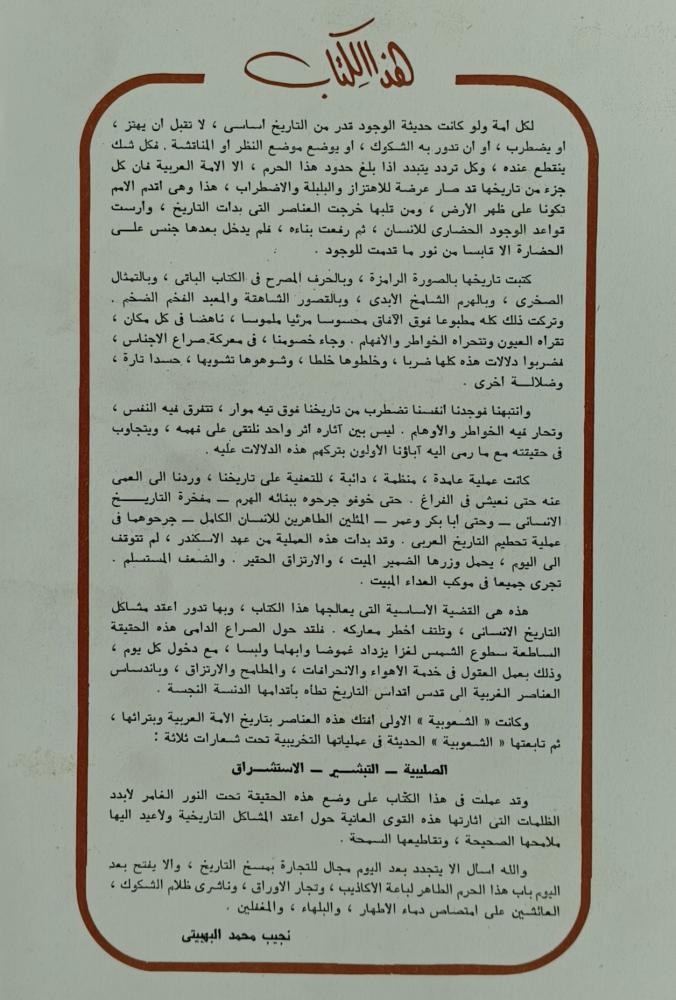 هذا الكتاب
لكل امة ولو كانت حديثة الوجود قدر من التاريخ اساسى ، لا تقبل ان يهتز ،
او يضطرب ، او ان تدور به الشكوك ، او يوضع موضع النظر او المناقشة . فكل شك
ينقطع عنده ، وكل تردد يتبدد اذا بلغ حدود هذا الحرم ، الا الامة العربية فان كل
جزء من تاريخها قد صار عرضة للاهتزاز والبلبلة والاضطراب ، هذا وهى اقدم الامم
تكونا على ظهر الارض ، ومن قلبها خرجت العناصر التى بدات التاريخ ، وارست
قواعد الوجود الحضارى للانسان ، ثم رفعت بناءه ، فلم يدخل بعدها جنس علـــى
الحضارة الا قابسا من نور ما قدمت للوجود .
كتبت تاريخها بالصورة الرامزة ، وبالحرف المصرح فى الكتاب الباقى ، وبالتمثال
الصخرى ، وبالهرم الشامخ الابدى ، وبالقصور الشاهقة والمعبد الفخم الضخم .
وتركت ذلك كله مطبوعا فوق الآفاق محسوسا مرئيا ملموسا ، ناهضا فى كل مكان ،
تقراه العيون وتتحراه الخواطر والافهام . وجاء خصومنا ، فى معركة صراع الاجناس ،
فضربوا دلالات هذه كلها ضربا ، وخلطوها خلطا ، وشوهوها تشويها ، حسدا تارة ،
وضلالـــة اخرى .
وانتبهنا فوجدنا انفسنا تضطرب من تاريخنا فوق تيه موار ، تتفرق فيه النفس ،
وتحار فيه الخواطر والاوهام . ليس بين آثاره اثر واحد نلتقى على فهمه ، ويتجاوب
فى حقيقته مع ما رمى اليه آباؤنا الاولون بتركهم هذه الدلالات عليه .
كانت عملية عامدة ، منظمة ، دائبة ، للتعفية على تاريخنا ، وردنا الى العمى
عنه حتى نعيش فى الفراغ . حتى خوفو جرحوه ببنائه الهرم — مفخرة التاريـــخ
الانسانى — وحتى ابا بكر وعمر — المثلين الطاهرين للانسان الكامل — جرحوهما فى
عملية تحطيم التاريخ العربى . وقد بدات هذه العملية من عهد الاسكندر ، لم تتوقف
الى اليوم ، يحمل وزرها الضمير الميت ، والارتزاق الحقير . والضعف المستسلم .
تجرى جميعا فى موكب العداء المبيت .
هذه هى القضية الاساسية التى يعالجها هذا الكتاب ، وبها تدور اعقد مشاكل
التاريخ الانسانى ، وتلتف اخطر معاركه . فلقد حول الصراع الدامى هذه الحقيقة
الساطعة سطوع الشمس لغزا يزداد غموضا وابهاما ولبسا ، مع دخول كل يوم ،
وذلك بعمل العقول فى خدمة الاهواء والانحرافات ، والمطامح والارتزاق ، وباندساس
العناصر الغربية الى قدس اقداس التاريخ تطأه بأقدامها الدنسة النجسة .
وكانت « الشعوبية » الاولى افتك هذه العناصر بتاريخ الأمة العربية وبتراثها ،
ثم تابعتها « الشعوبية » الحديثة فى عملياتها التخريبية تحت شعارات ثلاثة :
الصليبية — التبشير — الاستشـــراق
وقد عملت فى هذا الكتاب على وضع هذه الحقيقة تحت النور الغامر لابدد
الظلمات التى اثارتها هذه القوى العاتية حول اعقد المشاكل التاريخية ولاعيد اليها
ملامحها الصحيحة ، وتقاطيعها السمحة .
والله اسأل الا يتجدد بعد اليوم مجال للتجارة بمسخ التاريخ ، والا يفتح بعد
اليوم باب هذا الحرم الطاهر لباعة الاكاذيب ، وتجار الاوراق ، وناشرى ظلام الشكوك ،
العائشين على امتصاص دماء الاطهار ، والبلهاء ، والمغفلين .
نجيب محمد البهبيتى